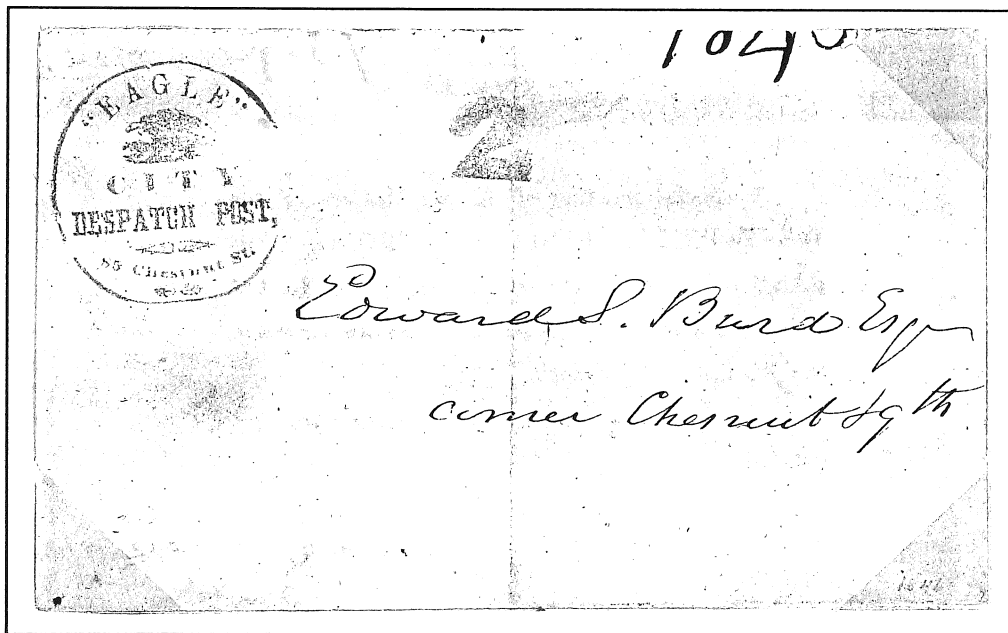 "EAGLE"
CITY
DESPATCH POST,
85 Chesnut St.
2
Edward S. Burd Esq
corner Chesnut & 9th